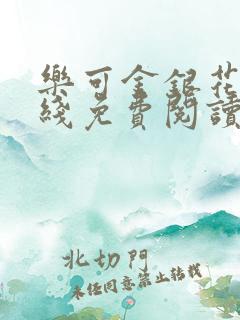 樂可金銀花
綫免費閱讀
北切門
未经同意禁止转载